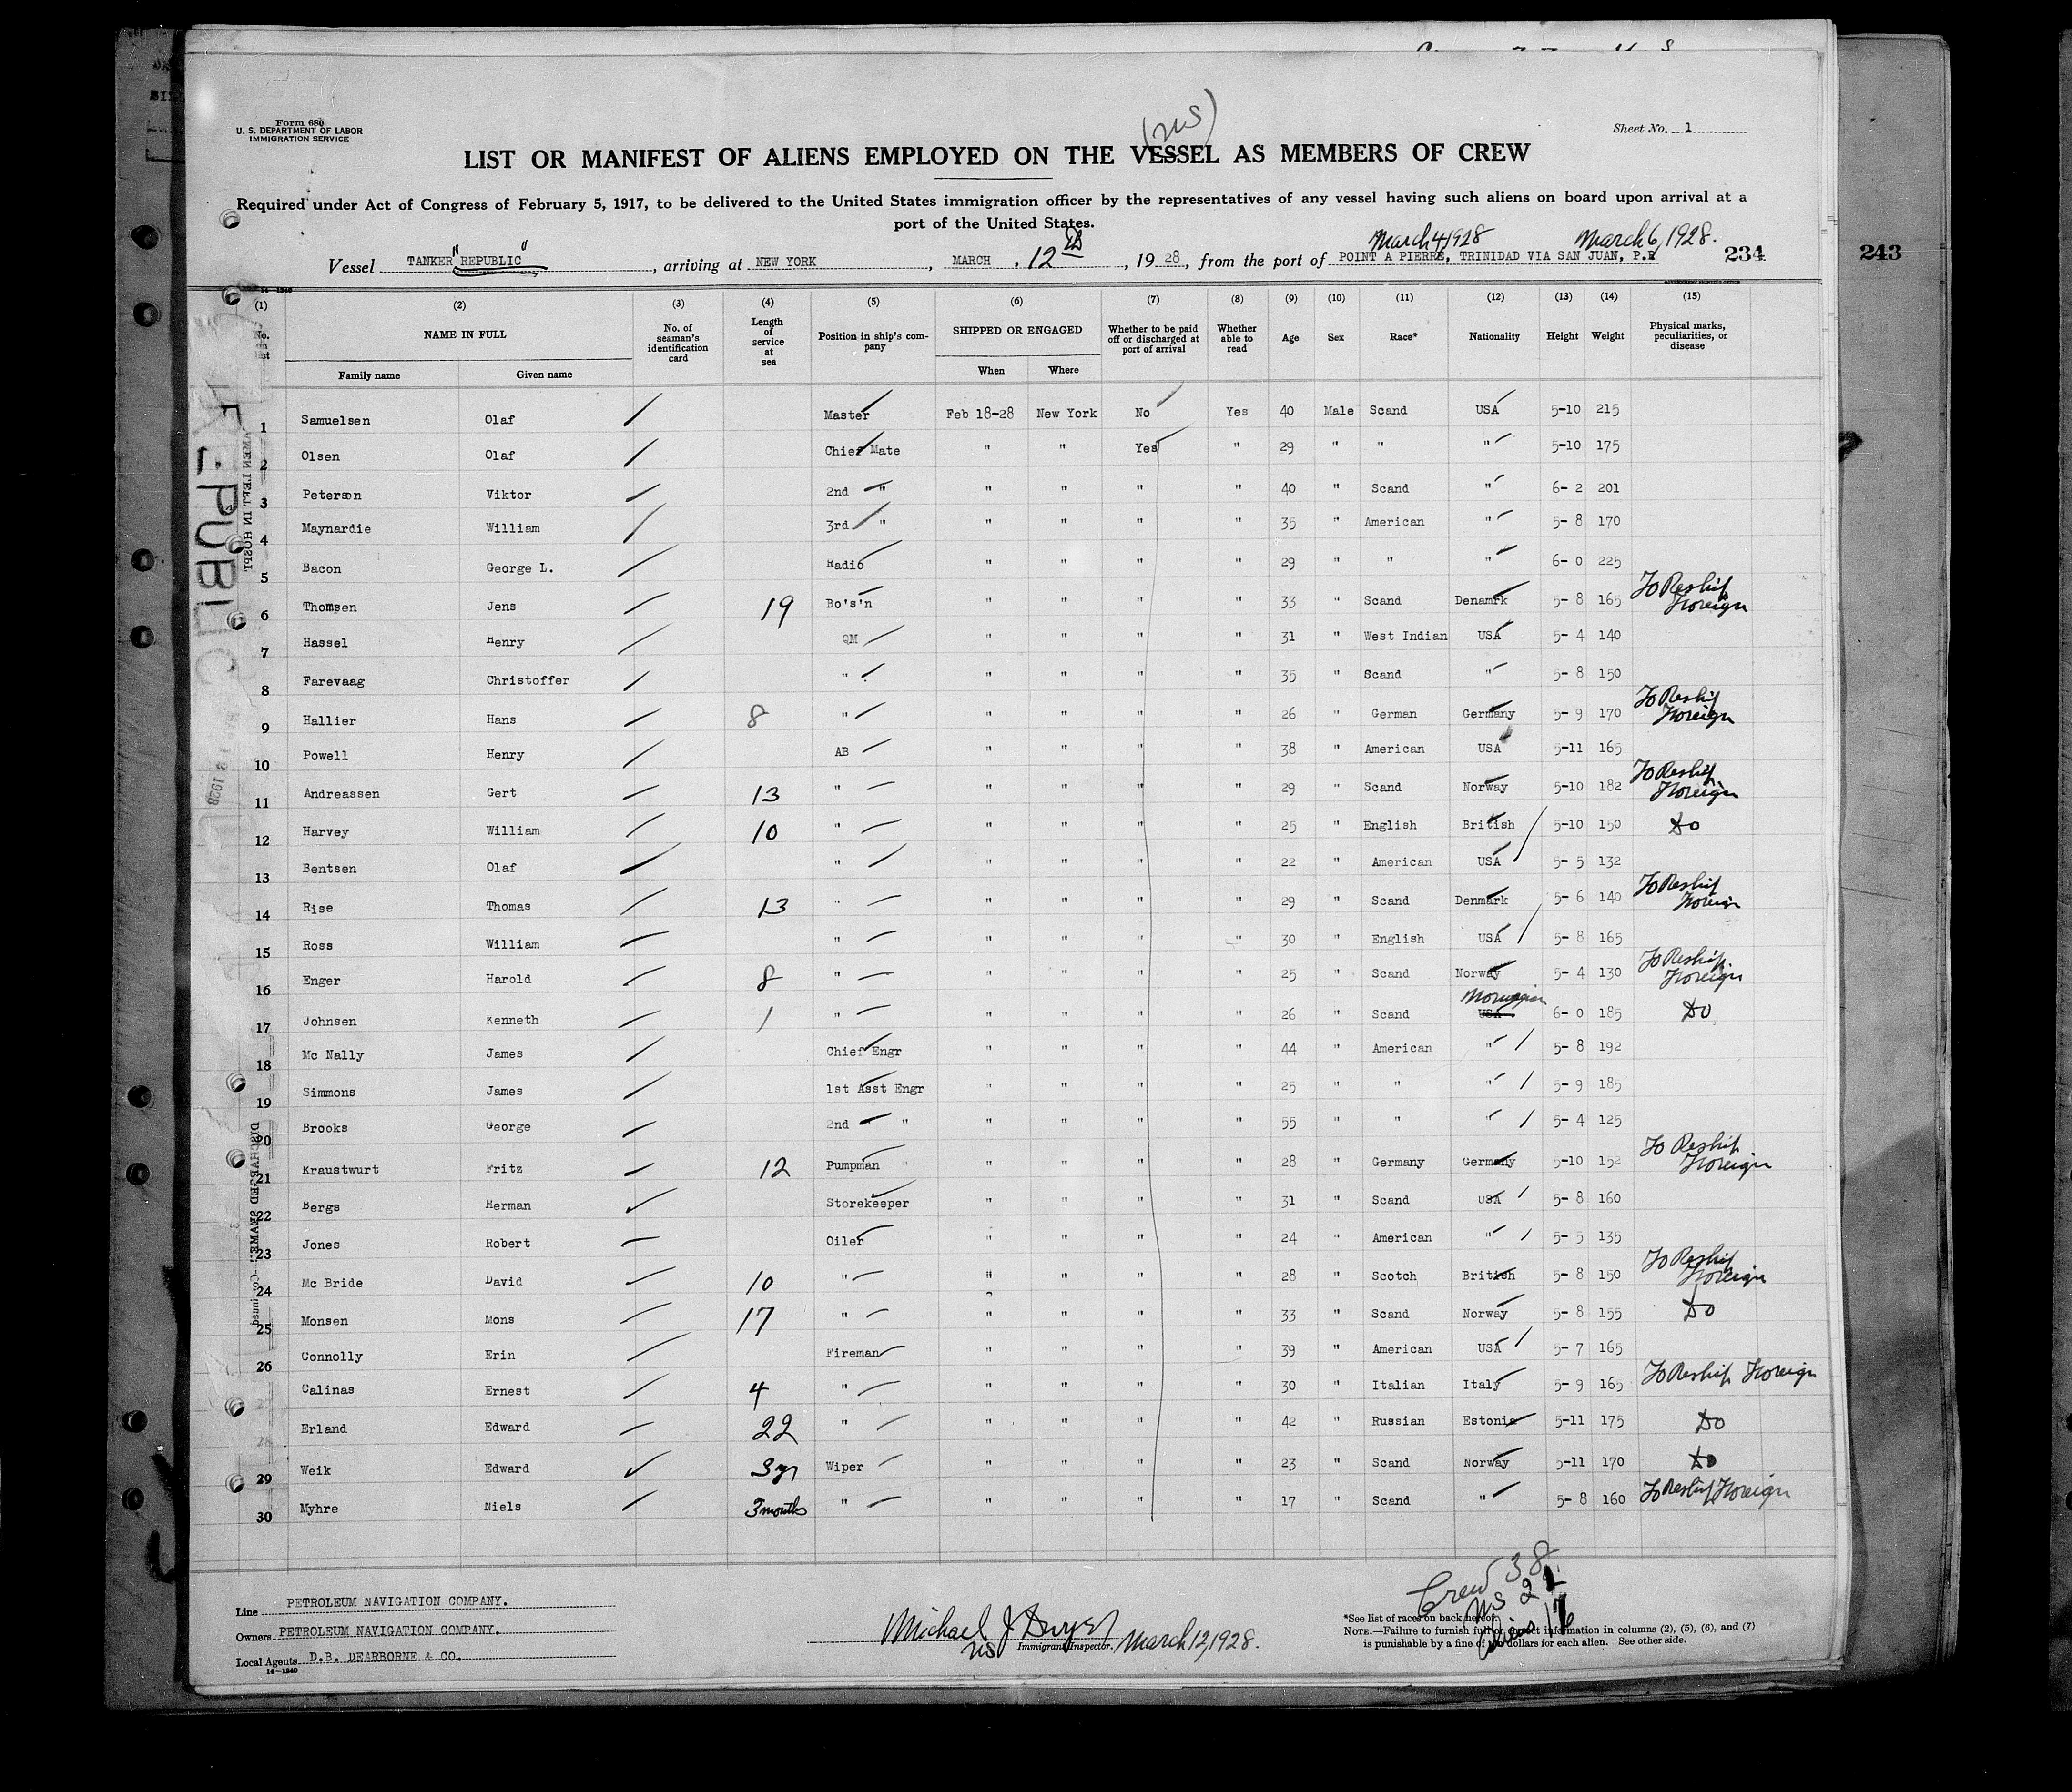 Form 680
U. S. DEPARTMENT OF LABOR
IMMIGRATION SERVICE
(US)
Sheet No. 1
LIST OR MANIFEST OF ALIENS EMPLOYED ON THE VESSEL AS MEMBERS OF CREW
Required under Act of Congress of February 5, 1917, to be delivered to the United States immigration officer by the representatives of any vessel having such aliens on board upon arrival at a
port of the United States.
March 4, 1928 March 6, 1928.
Vessel TANKER "REPUBLIC", arriving at NEW YORK, MARCH 12th, 1928, from the port of POINT A PIERRE, TRINIDAD VIA SAN JUAN, P.R 234 243
(1) (2) (3) (4) (5) (6) (7) (8) (9) (10) (11) (12) (13) (14) (15)
No. on list NAME IN FULL No. of seaman's identification card Length of service at sea Position in ship's company SHIPPED OR ENGAGED Whether to be paid off or discharged at port of arrival Whether able to read Age Sex Race* Nationality Height Weight Physical marks, peculiarities, or disease
Family name Given name When Where
1 Samuelsen Olaf Master Feb 18-28 New York No Yes 40 Male Scand USA 5-10 215
2 Olsen Olaf Chief Mate " " Yes " 29 " " " 5-10 175
3 Peterson Viktor 2nd " " " " " 40 " Scand " 6- 2 201
4 Maynardie William 3rd " " " " " 35 " American " 5- 8 170
5 Bacon George L. Radio " " " " 29 " " " 6- 0 225
6 Thomsen Jens 19 Bo's'n " " " " 33 " Scand Denamrk 5- 8 165 To Reship Foreign
7 Hassel Henry QM " " " " 31 " West Indian USA 5- 4 140
8 Farevaag Christoffer " " " " " 35 " Scand " 5- 8 150
9 Hallier Hans 8 " " " " " 26 " German Germany 5- 9 170 To Reship Foreign
10 Powell Henry AB " " " " 38 " American USA 5-11 165
11 Andreassen Gert 13 " " " " " 29 " Scand Norway 5-10 182 To Reship Foreign
12 Harvey William 10 " " " " " 25 " English British 5-10 150 Do
13 Bentsen Olaf " " " " " 22 " American USA 5- 5 132
14 Rise Thomas 13 " " " " " 29 " Scand Denmark 5- 6 140 To Reship Foreign
15 Ross William " " " " " 30 " English USA 5- 8 165
16 Enger Harold 8 " " " " " 25 " Scand Norway 5- 4 130 To Reship Foreign
17 Johnsen Kenneth 1 " " " " " 26 " Scand USA Norwegian 6- 0 185 Do
18 Mc Nally James Chief Engr " " " " 44 " American " 5- 8 192
19 Simmons James 1st Asst Engr " " " " 25 " " " 5- 9 185
20 Brooks George 2nd " " " " " 55 " " " 5- 4 125
21 Kraustwurt Fritz 12 Pumpman " " " " 28 " Germany Germany 5-10 152 To Reship Foreign
22 Bergs Herman Storekeeper " " " " 31 " Scand USA 5- 8 160
23 Jones Robert Oiler " " " " 24 " American " 5- 5 135
24 Mc Bride David 10 " " " " " 28 " Scotch British 5- 8 150 To Reship Foreign
25 Monsen Mons 17 " " " " " 33 " Scand Norway 5- 8 155 Do
26 Connolly Erin Fireman " " " " 39 " American USA 5- 7 165
27 Calinas Ernest 4 " " " " " 30 " Italian Italy 5- 9 165 To Reship Foreign
28 Erland Edward 22 " " " " " 42 " Russian Estonia 5-11 175 Do
29 Weik Edward 3 yr Wiper " " " " 23 " Scand Norway 5-11 170 Do
30 Myhre Niels 3 months " " " " " 17 " Scand " 5- 8 160 To Reship Foreign
REPUBLIC
Crew 38
US 21
Aliens 17
Line PETROLEUM NAVIGATION COMPANY.
Owners PETROLEUM NAVIGATION COMPANY.
Local Agents D.B. DEARBORNE & CO.
14—1240
Michael J Dwyer US Immigrant Inspector. March 12, 1928.
*See list of races on back hereof.
NOTE.—Failure to furnish full or correct information in columns (2), (5), (6), and (7)
is punishable by a fine of ten dollars for each alien. See other side.